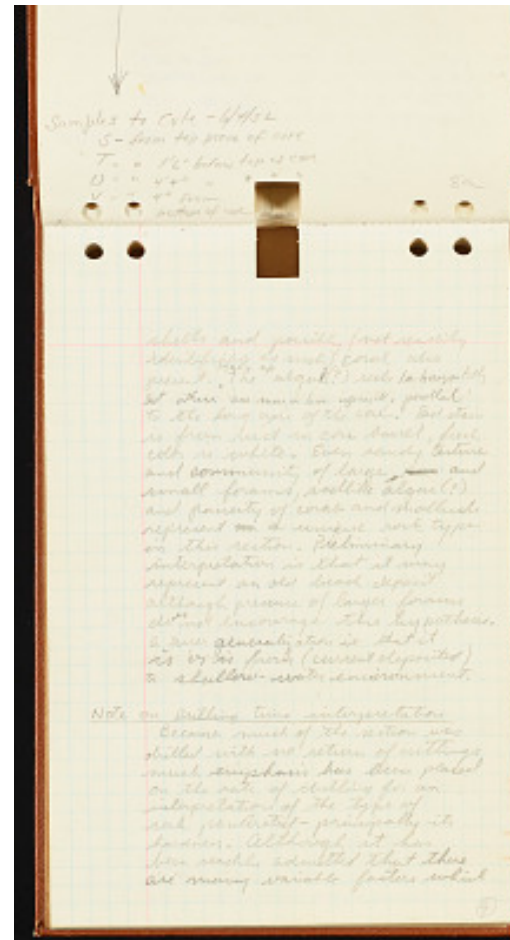 Samples to Cole - 6/4/52
S - from top piece of core
T - " 1'6" below top of core
U - " 4'4" " " " "
V - " 4" from
bottom of core
8a
shells and possibly (not readily
identifiable as such) coral also
present. The "algae(?) rods"
at others as much as upright, parallel
to the long axis of the core. Red stain
is from rust in core barrel, fresh
color is white. Even sandy texture
and community of large and
small forams, rodlike algae(?)
and paucity of corals and mollusks
represent a unique rock type
in this section. Preliminary
interpretation is that it may
represent an old beach deposit
although presence of larger forams
does not encourage this hypothesis.
a safer generalization is that it
is from (current deposited)
a shallow-water environment.
Note on drilling time interpretation
Because much of the section was
drilled with no return of cuttings
much emphasis has been placed
on the rate of drilling for an
interpretation of the type of
rock penetrated - principally its
hardness. Although it has
been readily admitted that there
are many variable factors which